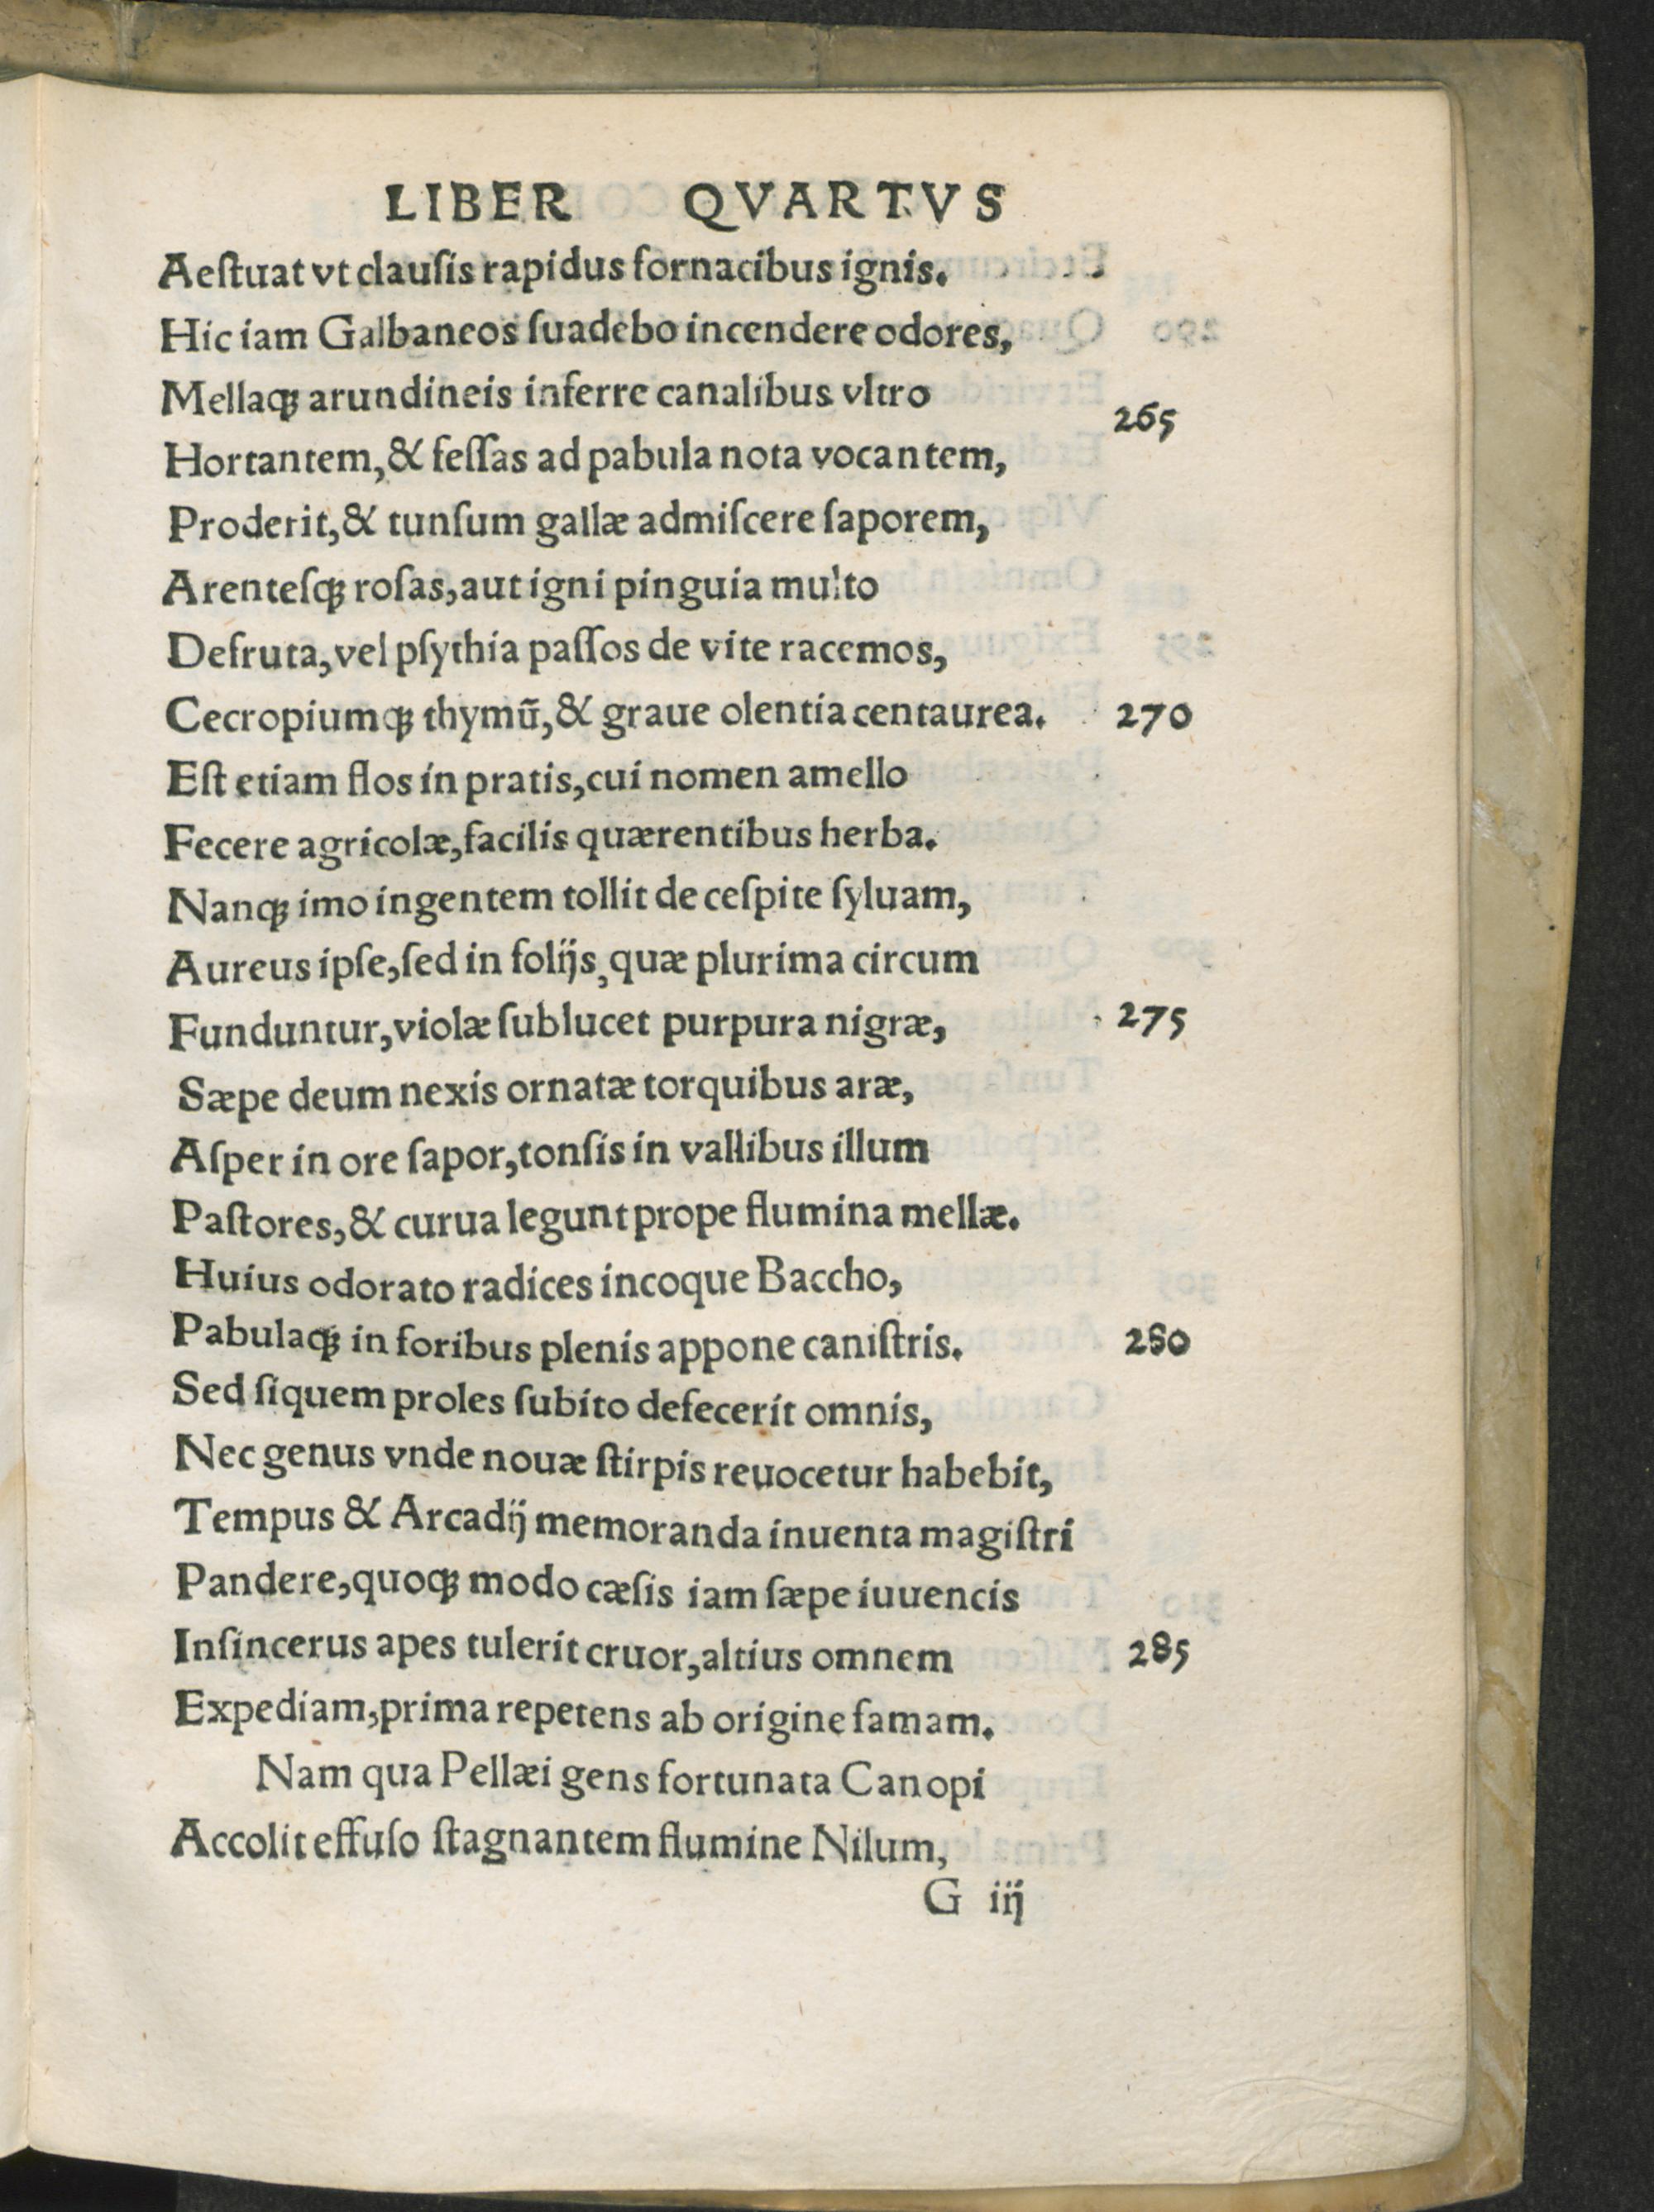 LIBER QVARTVS
Aeſtuat vt clauſis rapidus fornacibus ignis.
Hic iam Galbaneos ſuadebo incendere odores,
Mellaqꝫ arundineis inferre canalibus vltro
265
Hortantem, & feſſas ad pabula nota vocantem,
Proderit, & tunſum gallæ admiſcere ſaporem,
Arenteſqꝫ roſas, aut igni pinguia multo
Defruta, vel pſythia paſſos de vite racemos,
Cecropiumqꝫ thymū, & graue olentia centaurea. 270
Eſt etiam flos in pratis, cui nomen amello
Fecere agricolæ, facilis quærentibus herba.
Nanqꝫ imo ingentem tollit de ceſpite ſyluam,
Aureus ipſe, ſed in folijs, quæ plurima circum
Funduntur, violæ ſublucet purpura nigræ, 275
Sæpe deum nexis ornatæ torquibus aræ,
Aſper in ore ſapor, tonſis in vallibus illum
Paſtores, & curua legunt prope flumina mellæ.
Huius odorato radices incoque Baccho,
Pabulaqꝫ in foribus plenis appone caniſtris. 280
Sed ſiquem proles ſubito defecerit omnis,
Nec genus vnde nouæ ſtirpis reuocetur habebit,
Tempus & Arcadij memoranda inuenta magiſtri
Pandere, quoqꝫ modo cæſis iam ſæpe iuuencis
Inſincerus apes tulerit cruor, altius omnem 285
Expediam, prima repetens ab origine famam.
Nam qua Pellæi gens fortunata Canopi
Accolit effuſo ſtagnantem flumine Nilum,
G iij